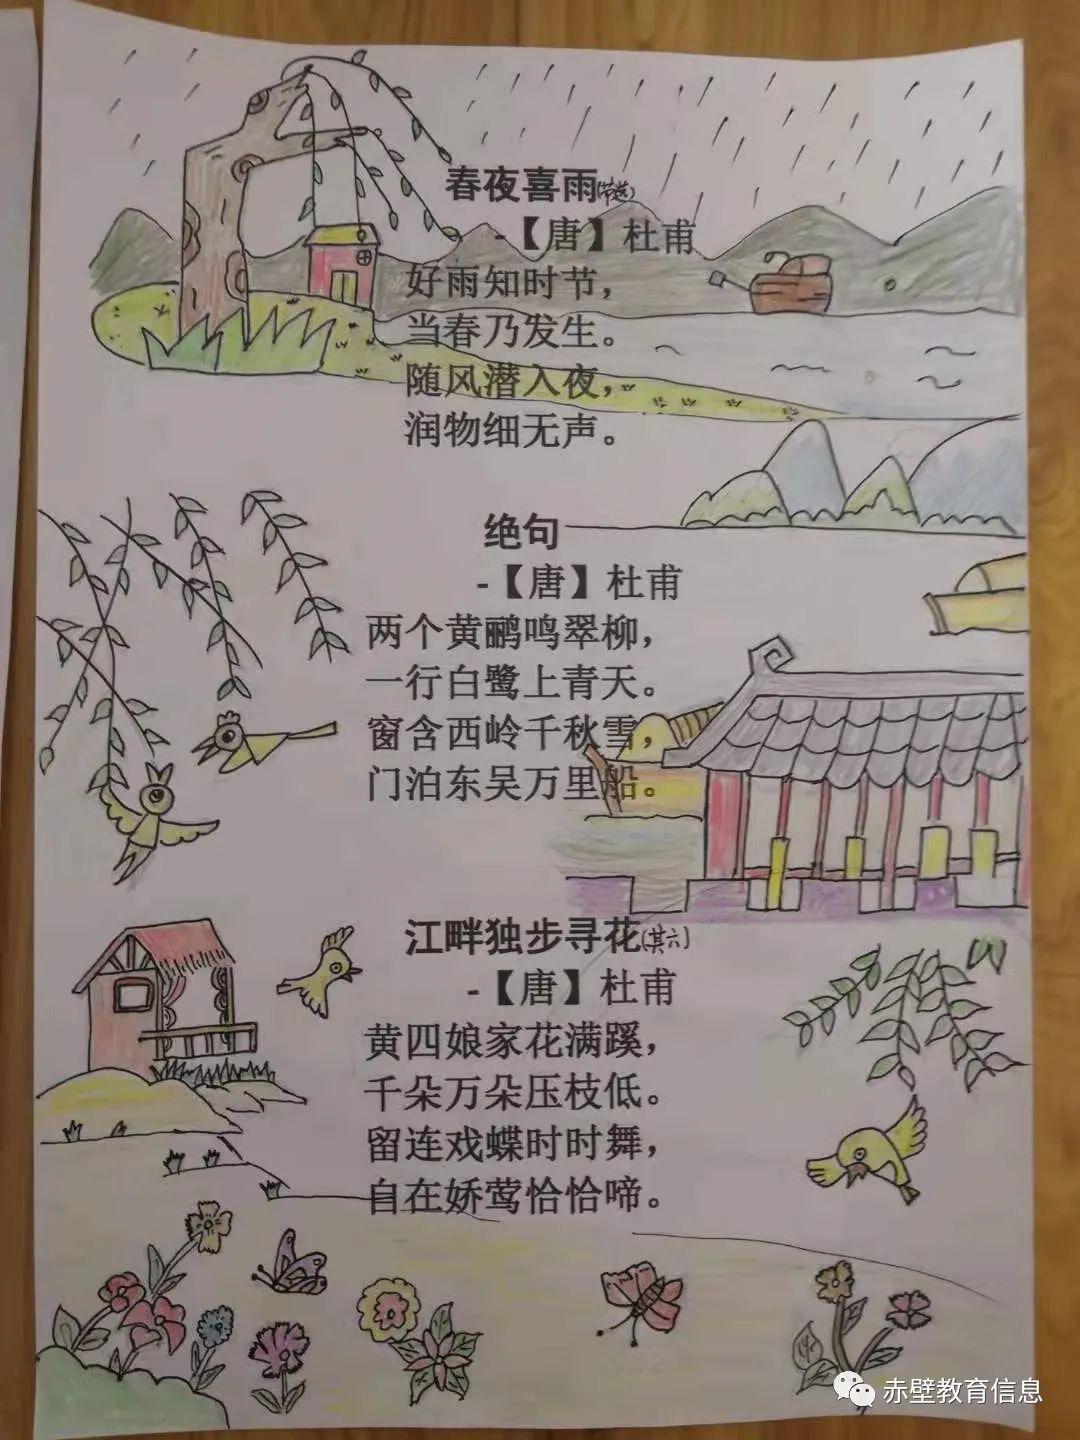 春夜喜雨(节选)
-【唐】杜甫
好雨知时节，
当春乃发生。
随风潜入夜，
润物细无声。
绝句
-【唐】杜甫
两个黄鹂鸣翠柳，
一行白鹭上青天。
窗含西岭千秋雪，
门泊东吴万里船。
江畔独步寻花(其六)
-【唐】杜甫
黄四娘家花满蹊，
千朵万朵压枝低。
留连戏蝶时时舞，
自在娇莺恰恰啼。
赤壁教育信息